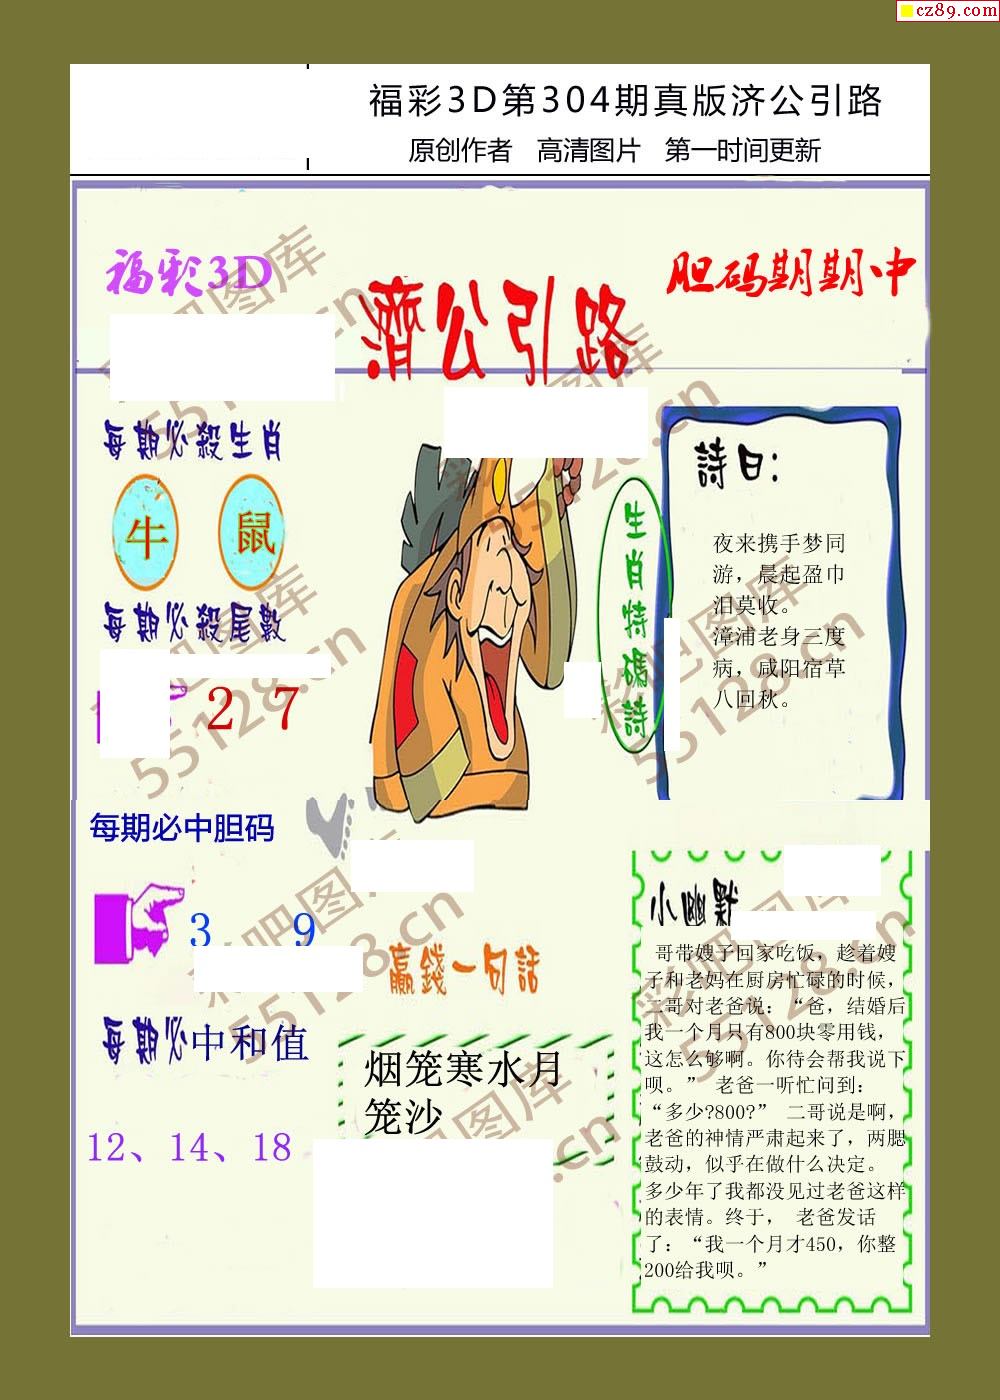 cz89.com
福彩3D第304期真版济公引路
原创作者 高清图片 第一时间更新
福彩3D
濟公引路
胆码期期中
每期必殺生肖
牛 鼠
每期必殺尾數
2 7
每期必中胆码
3 9
每期必中和值
12、14、18
生肖特碼詩
詩曰：
夜来携手梦同
游，晨起盈巾
泪莫收。
漳浦老身三度
病，咸阳宿草
八回秋。
贏錢一句話
烟笼寒水月
笼沙
小幽默
哥带嫂子回家吃饭，趁着嫂
子和老妈在厨房忙碌的时候，
二哥对老爸说：“爸，结婚后
我一个月只有800块零用钱，
这怎么够啊。你待会帮我说下
呗。” 老爸一听忙问到：
“多少?800?” 二哥说是啊，
老爸的神情严肃起来了，两腮
鼓动，似乎在做什么决定。
多少年了我都没见过老爸这样
的表情。终于， 老爸发话
了：“我一个月才450，你整
200给我呗。”
彩吧图库
55128.cn